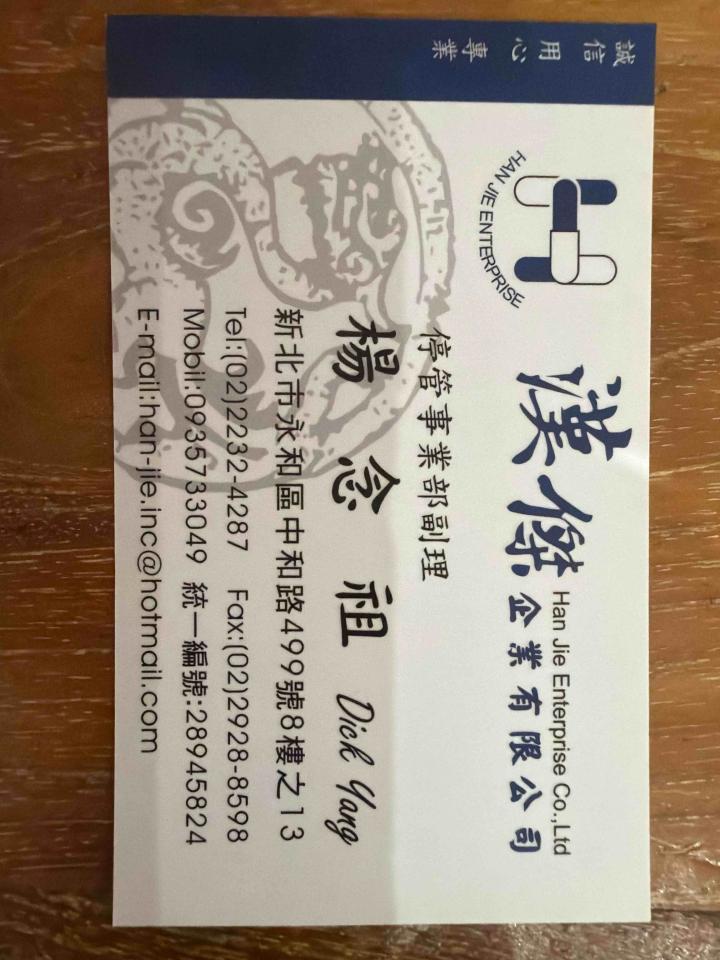 誠信 用心 專業
HAN JIE ENTERPRISE
漢傑企業有限公司
Han Jie Enterprise Co.,Ltd
停管事業部副理
楊念祖 Dick Yang
新北市永和區中和路499號8樓之13
Tel:(02)2232-4287 Fax:(02)2928-8598
Mobil:0935733049 統一編號:28945824
E-mail:han-jie.inc@hotmail.com